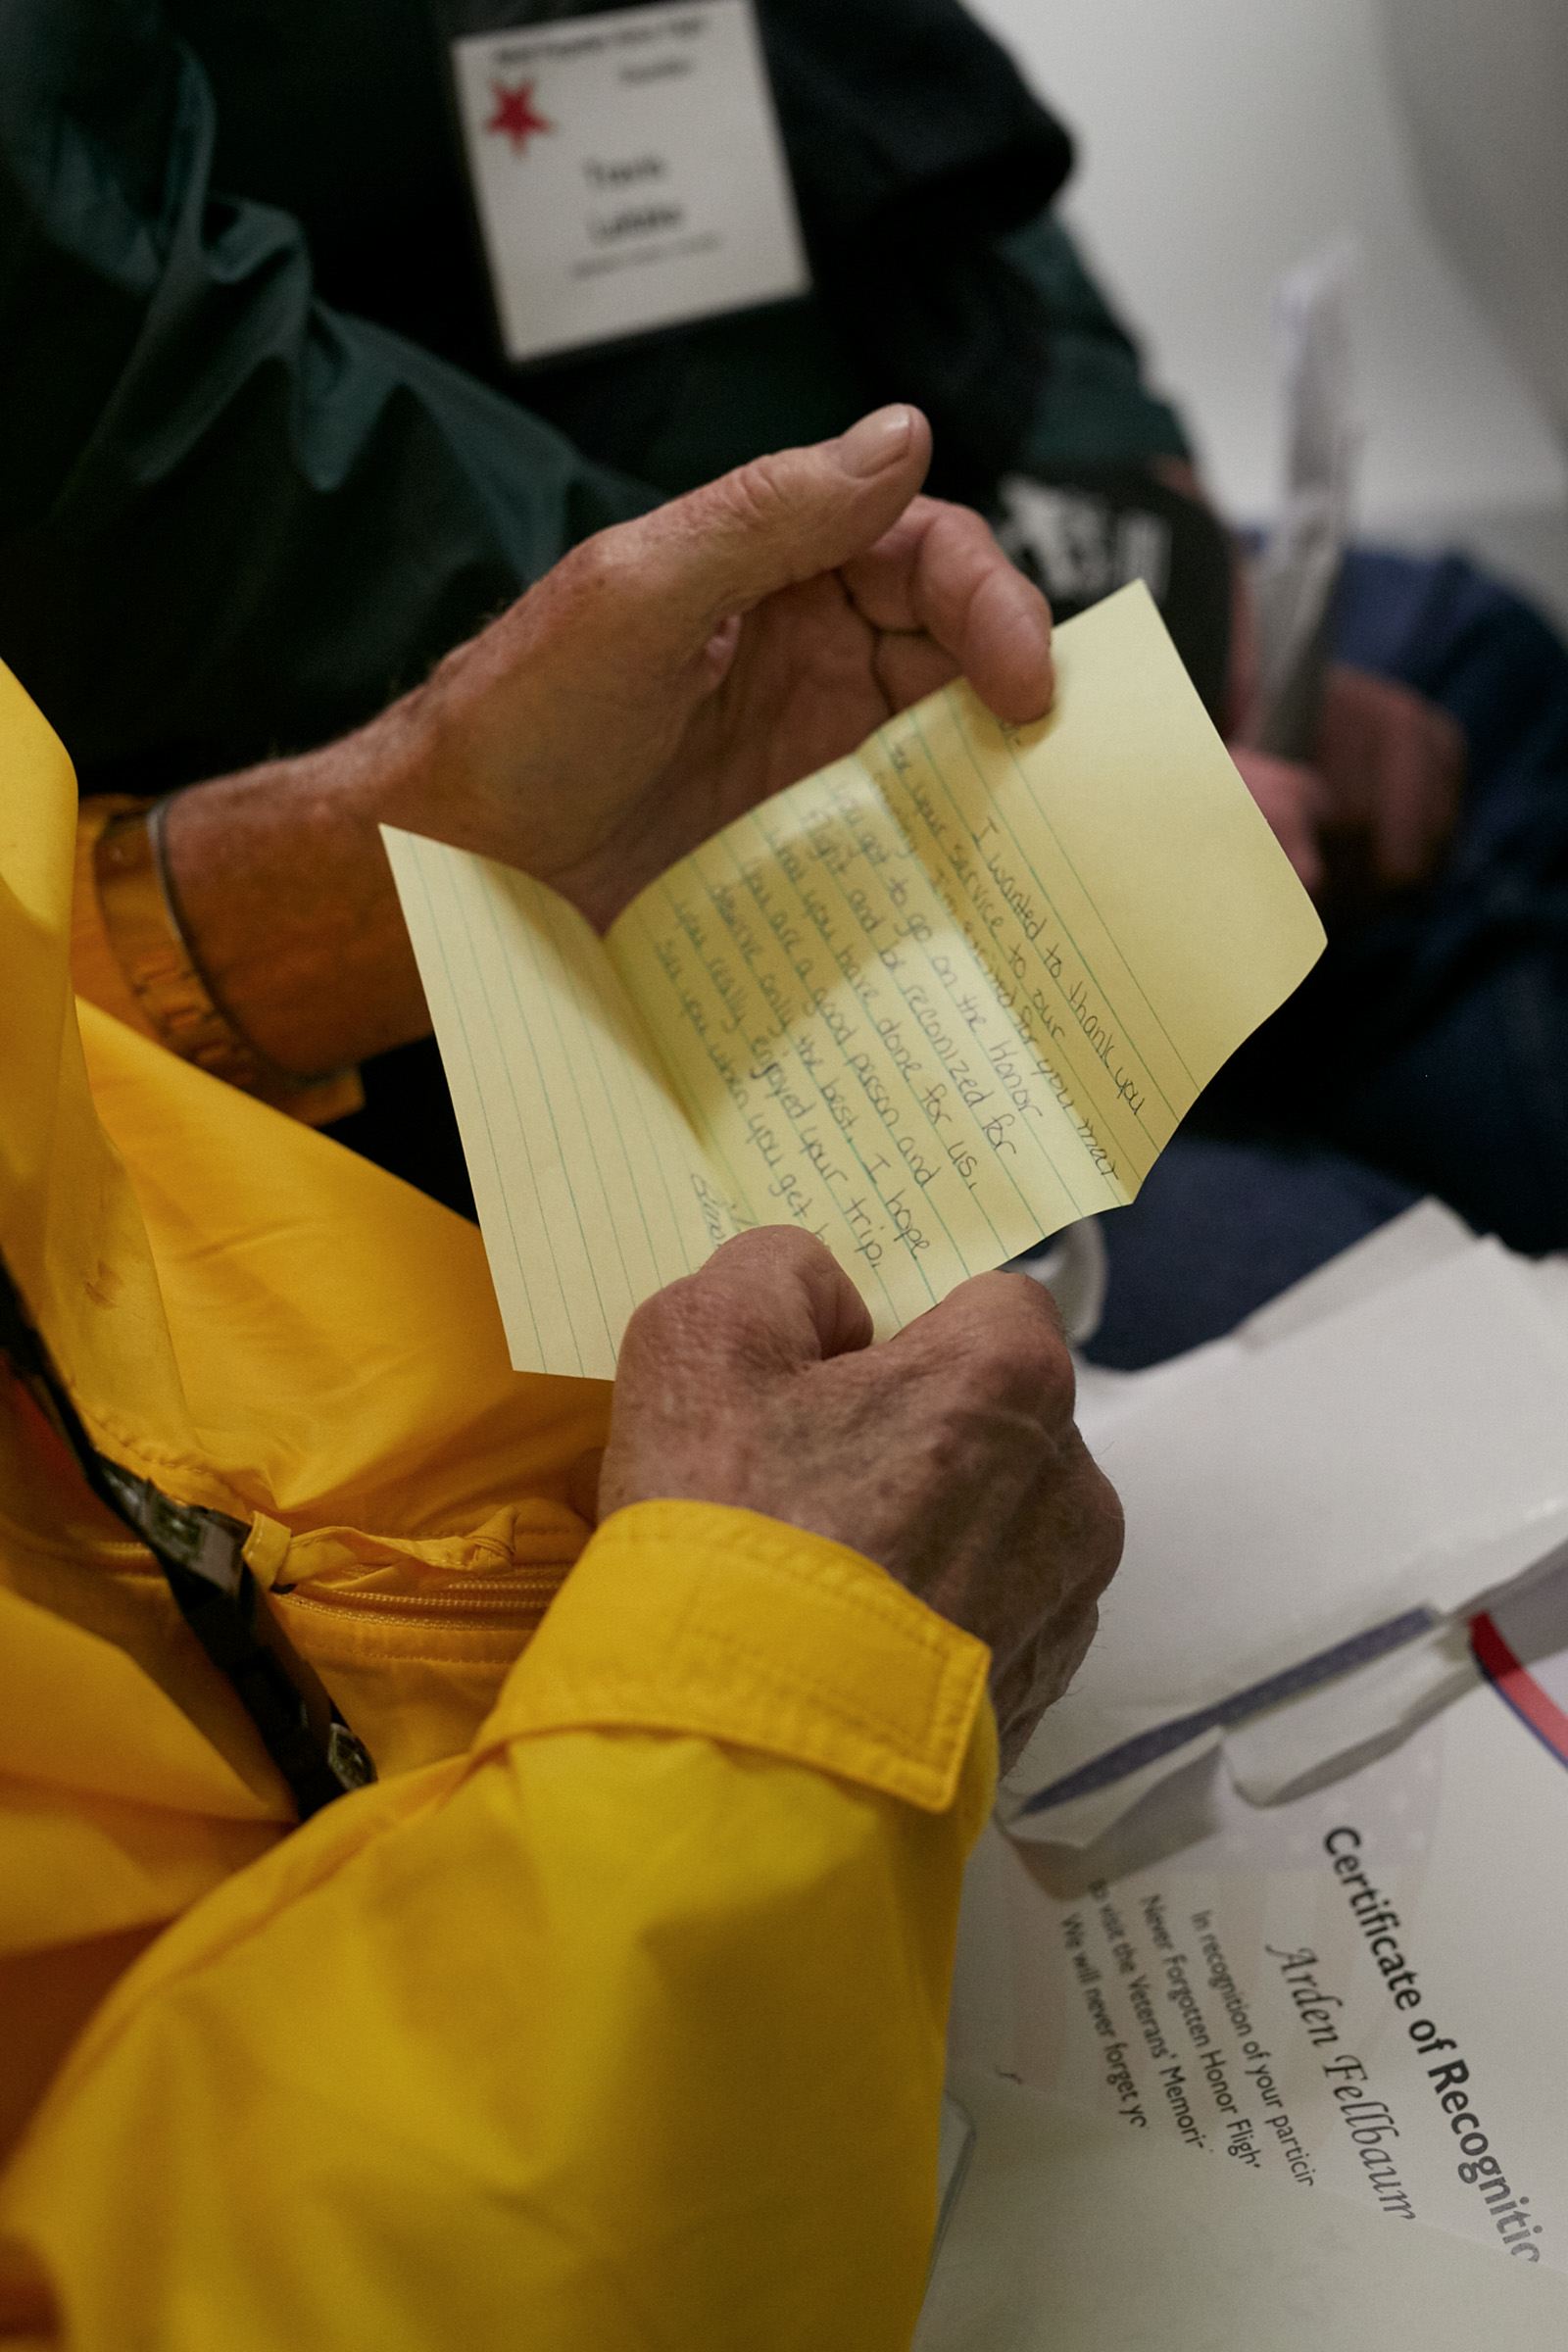 Travis
I wanted to thank you
for your service to our
country. I'm excited for you that
you got to go on the Honor
Flight and be reconized for
what you have done for us.
You are a good person and
deserve only the best. I hope
you really enjoyed your trip.
See you when you get h
Certificate of Recognitio
Arden Fellbaum
In recognition of your particip
Never Forgotten Honor Fligh
to visit the Veterans' Memori
We will never forget yo